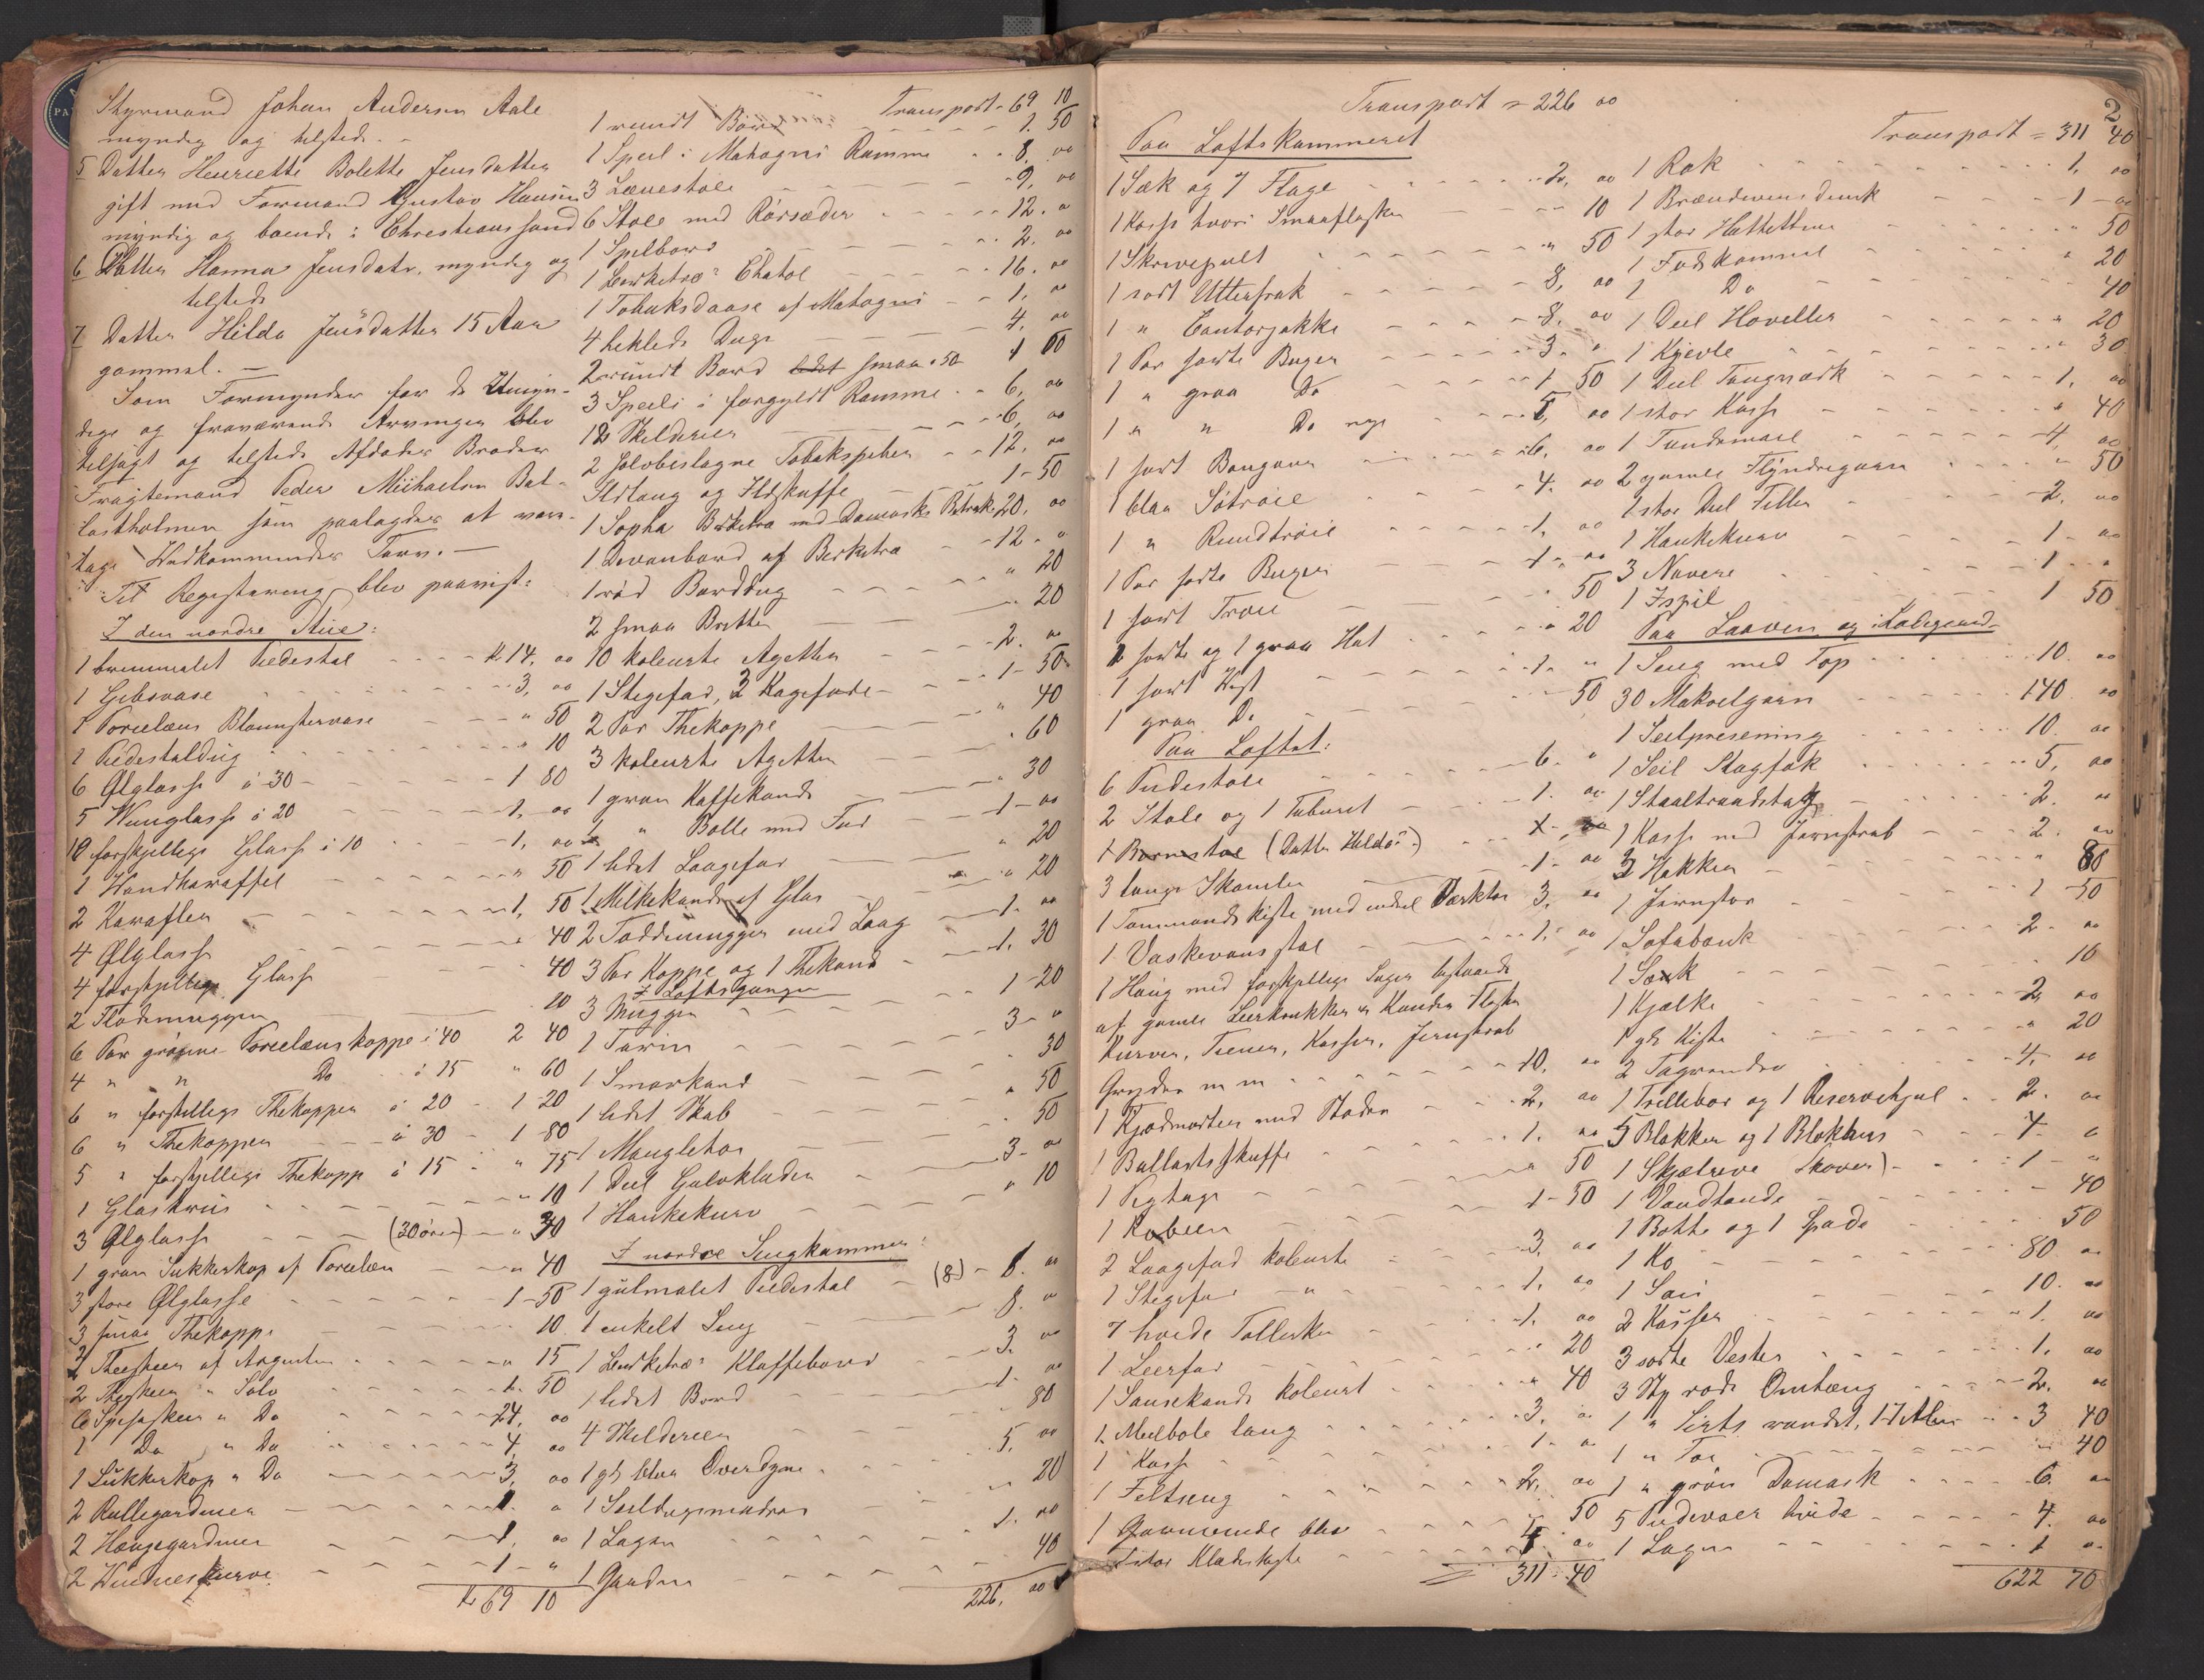 Styrmand Johan Andersen Aale
myndig og tilstede. -
5 Datter Henriette Bolette Jensdatter
gift med Formand Gustav Hansen
myndig og boende i Christianssand
6 Datter Hanna Jensdatr. myndig og
tilstede
7 Datter Hilda Jensdatter 15 Aar
gammel. -
Som Formynder for de Umyn-
dige og fraværende Arvinger blev
tilsagt og tilstede Afdødes Broder
Fragtemand Peder Michaelsen Bal-
lastholmen som paalagdes at vare-
tage Vedkommendes Tarv. -
Til Registrering blev paavist:
I den nordre Stue:
1 brunmalet Piedestal Kr 14. 00
1 Gibsvase 3. 00
1 Porcelæns Blomstervase " 50
1 Piedestaldug " 10
6 Ølglasse à 30 - 1 80
5 Vinglasse à 20 1. 00
10 forskjellige Glasse à 10 1. 00
1 Vandkaraffel " 50
2 Karafler 1. 50
4 Ølglasse " 40
4 forskjellige Glasse 40
2 Flødemugger 20
6 Par grønne Porcelænskoppe à 40 2 40
4 " " Do à 15 " 60
6 " forskellige Thekopper à 20 - 1 20
6 " Thekopper à 30 - 1 80
5 " forskjellige Thekopp à 15 - " 75
1 Glaskrus " 10
3 Ølglasse (30 öre) " 30
1 grøn Sukkerkop af Porcelæn " 40
3 store Ølglasse 1 - 50
3 smaa Thekoppe 10
Theeskeer af Argentan " 15
2 Theskeer " Sølv 1. 50
6 Spiseskeer " Do 24. 00
1 Do " Do 4. 00
1 Sukkerkop " Do 3. 00
2 Rullegardiner 1. "
2 Hængegardiner 1. 00
2 Vindueskurve 1 - "
Kr 69 10
Transport - 69 10
1 rundt Bord 1. 50
1 Speil i Mahogni Ramme 8. 00
3 Lænestole 9. 00
6 Stole med Rørsæder 12. "
1 Spilbord 2. 00
1 Birketræs Chatol 16. 00
1 Tobaksdaase af Mahogni 1. "
4 heklede Duge 4. 00
2 rundt Bord lidet smaa à 50 1 00
3 Speile i forgyldt Ramme 6. 00
12 Skilderier 6. 00
2 sølvbeslagne Tobakspiber 12. 00
Ildtang og Ildskuffe 1 - 50
1 Sopha Birketræ med Damasks Betræk 20. 00
1 Divanbord af Birketræ 12. "
1 rød Borddug " 20
2 smaa Bretter 20
10 kolørte Agetter 2. 00
1 Stegefad, 2 Kagefade 1 - 50
2 Par Thekoppe " 40
3 kolørte Agetter " 60
1 grøn Kaffekande " 30
1 " Bolle med Fad 1 - 00
1 lidet Laagefad " 20
1 Melkekande af Glas " 20
2 Toddemugger med Laag 1. 00
3 Par Koppe og 1 Thekand 1. 30
I Loftsgangen
3 Mugger 1 - 20
1 Tørin 3 - "
1 Smørkand " 30
1 lidet Skab " 50
1 Manglebor " 50
1 Deel Gulvklæder 3 - 00
1 Hankekurv " 10
I nordre Sengkammer:
1 gulmalet Piedestal (8) - 8. 00
1 enkelt Seng 8. "
1 Birketræs Klaffebord 3. 00
1 lidet Bord 1. 00
4 Skilderier 80
1 gl. blaa Overdyne 5. 00
1 Seildugsmadras " 20
1 Lagen 1. 00
1 Gardin 40
226. 00
Transport = 226 00
Paa Loftskammeret
1 Sæk og 7 Flage 2. 00
1 Kasse hvori Smaaflasker 10
1 Skrivepult " 50
1 sort Ulterfrak 8. 00
1 " Contorjakke 8. 00
1 Par sorte Buxer 3. "
1 " graa Do 1 50
1 " " Do nye 5. 00
1 sort Bonjour 6. 00
1 blaa Søtrøie 4. 00
1 " Rundtrøie 1. 00
1 Par sorte Buxer 1. 00
1 sort Trøie 50
2 sorte og 1 graa Hat " 20
1 sort Vest 1. "
1 graa Do 50
Paa Loftet:
6 Pindestole 6. "
2 Stole og 1 Taburet 1. 00
1 Barnestol (Datter Hildas)
3 lange Skamler 1. 00
1 Tømmandskiste med endeel Værktøi 3. 00
1 Vaskevansstol 1. 00
1 Haug med forskjellige Sager bestaaende
af gamle Leerkrukker og Kander Flasker
Kurver, Tiener, Kasser, Jernskrab
Gryder m m 10. 00
1 Kjødmorter med Støder 2. 00
1 Ballastskuffe 1. 00
1 Pigtage " 50
1 Kobeen 1 - 50
2 Laagefad kolørte 3. 00
1 Stegefad " 1. 00
7 hvide Tallerker 1. 00
1 Leerfad 20
1 Sausekande kolørt " 40
1 Meelbole lang 3. 00
1 Kasse 1. "
1 Feltseng 2. 00
1 Gammende blaa 50
1 stor Klædeskiste 4. 00
311 - 40
2
Transport = 311 40
1 Rok 1. 00
1 Brændevinsdunk 1 - 00
1 stor Hættetine 50
1 Fodskammel " 20
1 Do 40
1 Deel Hoveller " 20
1 Kjevle " 30
1 Deel Tougværk 1. 00
1 stor Kasse " 40
1 Tøndemaal 4. 00
2 gamle Flyndregarn " 50
1 stor Deel Filler 2. 00
1 Hankekurv 1 - 00
3 Navere 1 - "
1 Ispil 1 50
Paa Laaven og i Ladegaard
1 Seng med Top 10. 00
30 Makrelgarn 140 00
1 Seilpresening 10. 00
1 Seil Stagfok 5. 00
1 Staaltraadstag 2. 00
1 Kasse med Jernskrab 2. 00
3 Hakker " 80
1 Jernstør 1 - 50
1 Sofabænk 2. 00
1 Sænk 10
1 Kjælke 2. 00
1 gl. Kiste " 20
2 Tagrender 4. 00
1 Trillebør og 1 Reservehjul 2. 00
5 Blokker og 1 Blokhus 4. "
1 Skjælreve (Skover) 1 - "
1 Vandtønde 40
1 Bøtte og 1 Spade 50
1 Ko 80 00
1 Sau 10. 00
2 Kasser 1. 00
3 sorte Vester 1. 00
3 Sty røde Omhæng 2. 00
1 " Sirts vandet, 17 Alen 3 40
1 " Tøi 40
1 " grøn Damask 6. 00
5 Pudevaer hvide 4. 00
1 Lagen 1 00
622 70